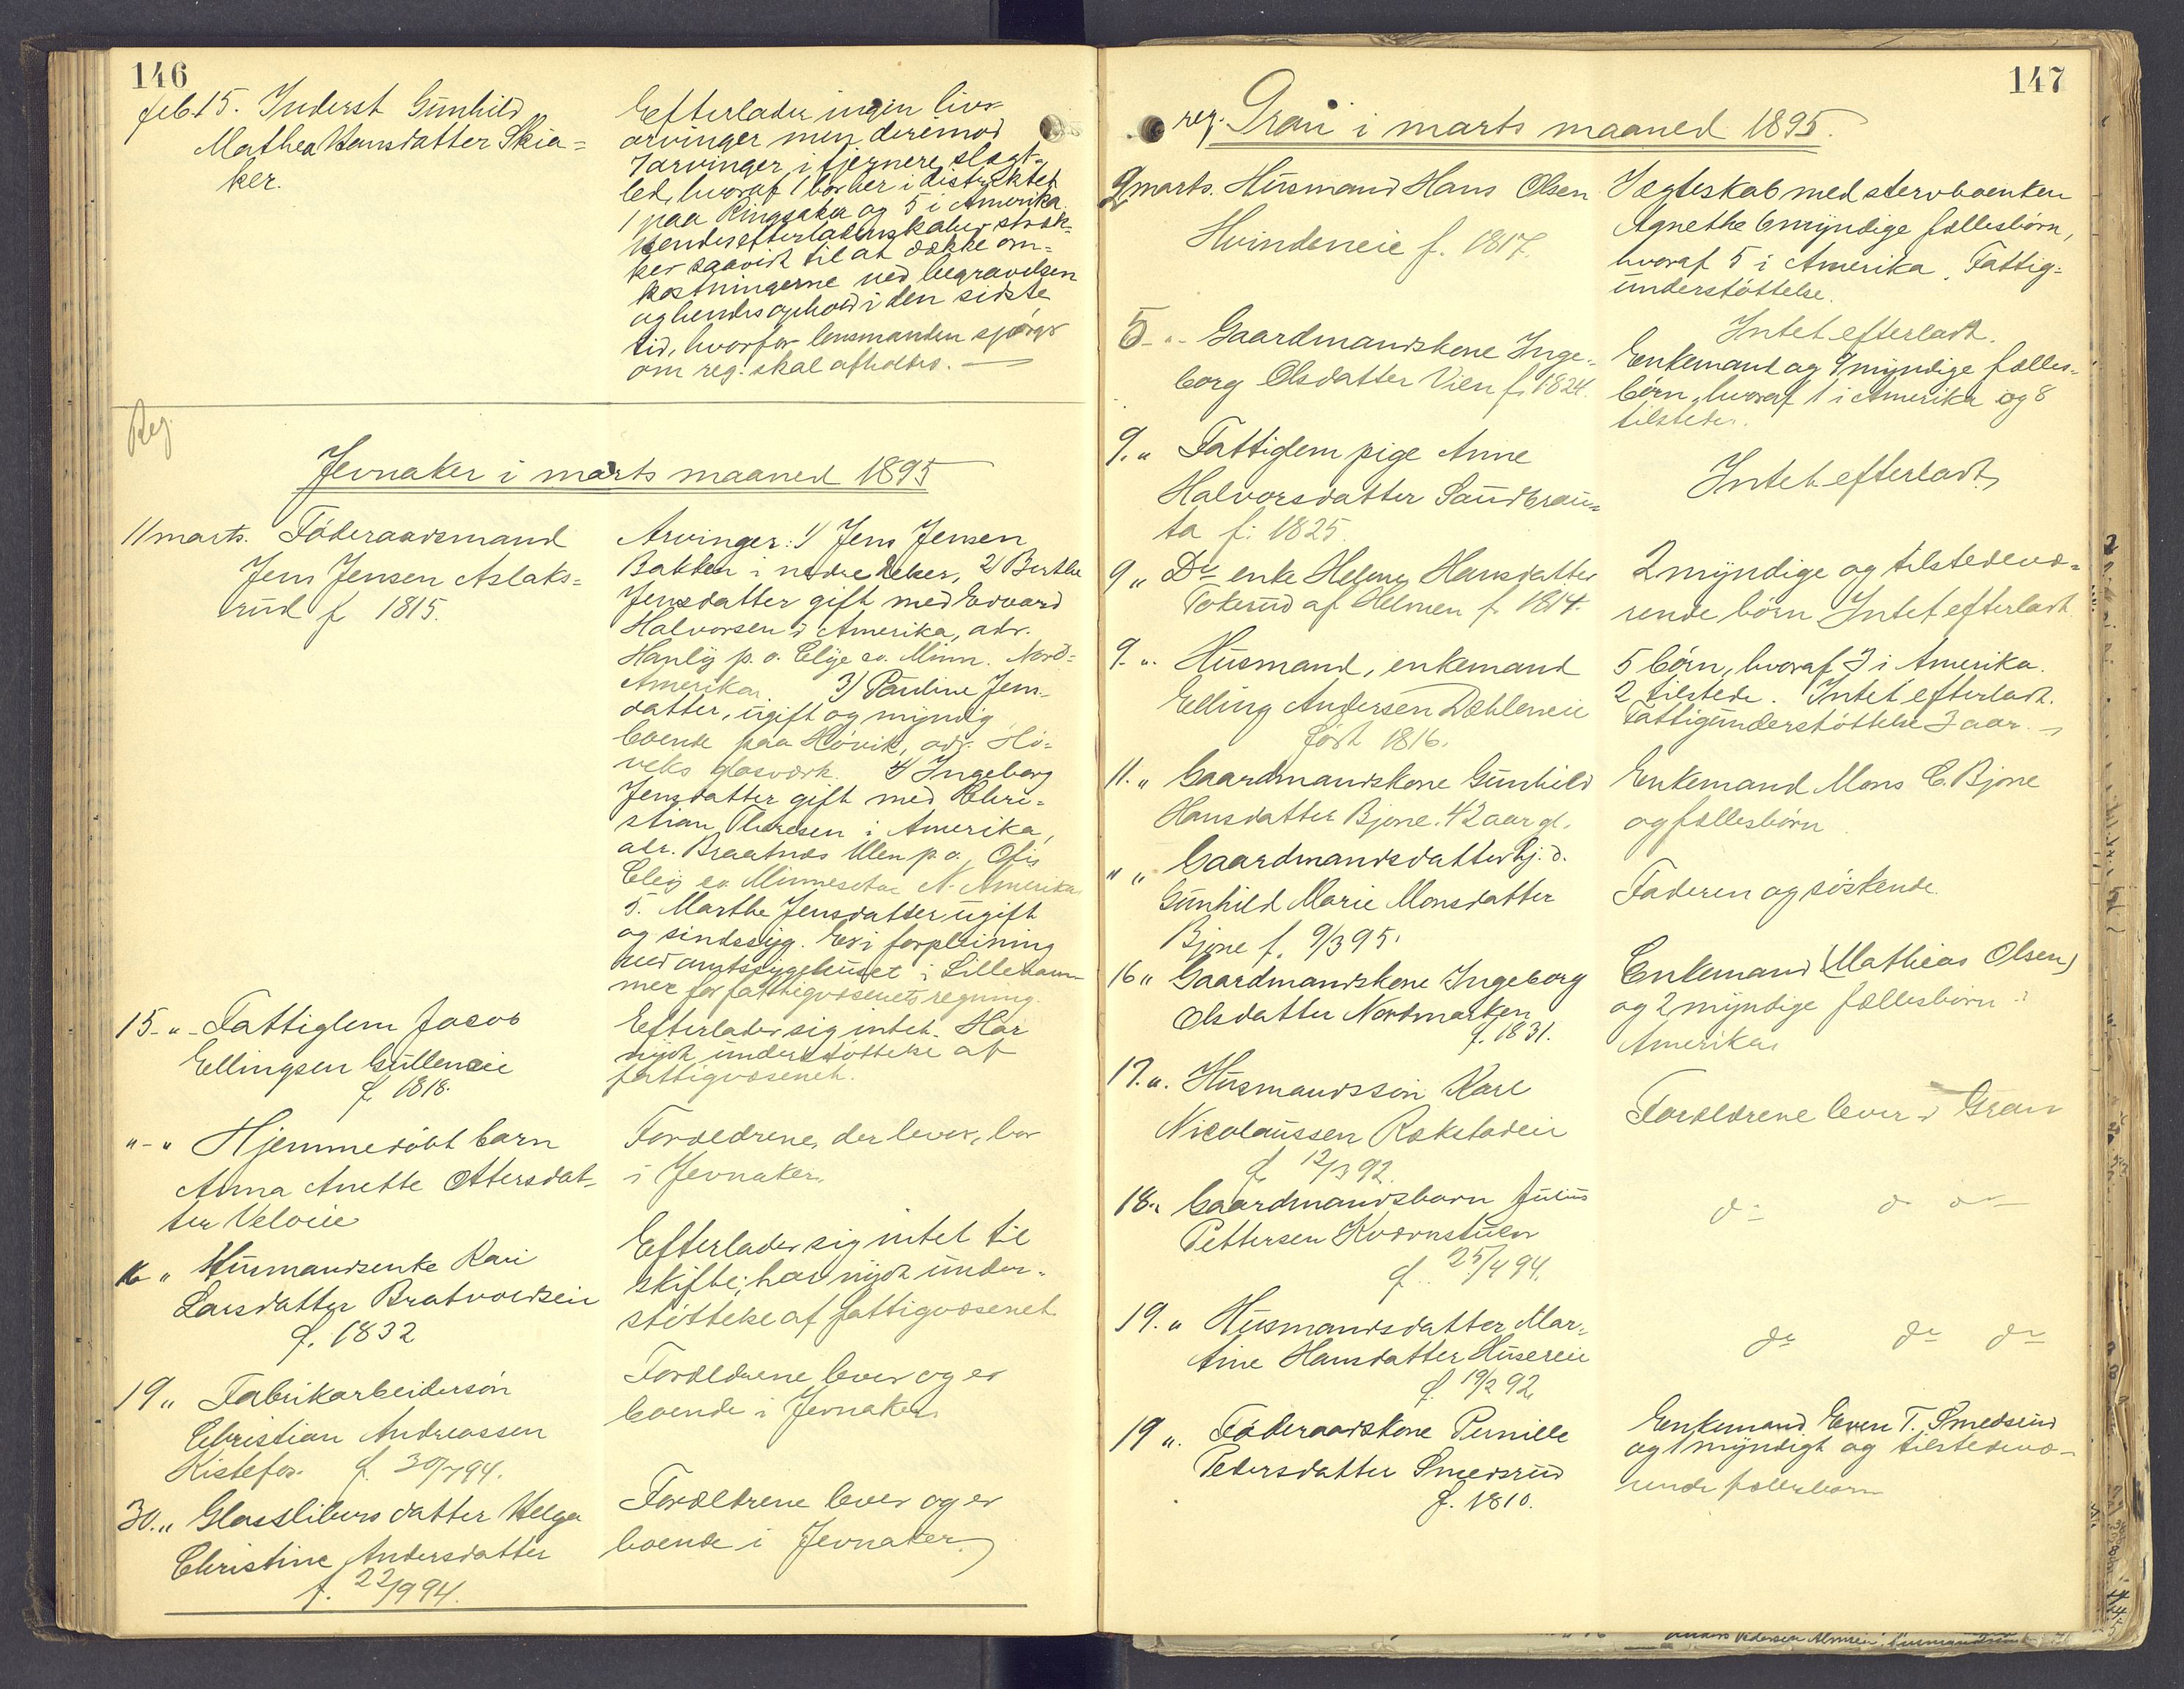 146
feb. 15. Inderst Gunhild
Mathea Hansdatter Skia=
ker.
Efterlader ingen livs
arvinger men derimod
7 arvinger i fjernere slægt=
led, hvoraf 1 bor her i distriktet
1 paa Ringsaker og 5 i Amerika.
Hendes efterladenskaber stræk=
ker saavidt til at dække om=
kostningerne ved begravelsen
og hendes ophold i den sidste
tid, hvorfor lensmanden spørgr
om reg. skal afholdes. —
Reg.
Jevnaker i marts maaned 1895
11 marts. Föderaadsmand
Jens Jensen Aslaks=
rud f. 1815.
Arvinger: 1) Jens Jensen
Bakken i nedre Eker, 2) Berthe
Jensdatter gift med Edvard
Halvorsen i Amerika, adr.
p. o. co. Minn. Nord=
Amerika. 3) Pauline Jens=
datter, ugift og myndig
boende paa Hövik, adr. Hö=
viks glasværk. 4) Ingeborg
Jensdatter gift med Chri=
stian Theresen i Amerika,
adr. Braatnæs Ulen p. o.
co. Minnesota N. Amerika
5. Marthe Jensdatter ugift
og sindssyg. Er i forpleining
ved amtssygehuset i Lilleham=
mer for fattigvæsenets regning.
15 - " - Fattiglem Jacob
Ellingsen Gulleneie
f. 1818.
Efterlader sig intet. Har
nydt understöttelse af
fattigvæsenet.
" - " Hjemmedöbt barn
Anna Anette Ottersdat=
ter Veloeie
Forældrene, der lever, bor
i Jevnaker.
16 " Husmandsenke Kari
Larsdatter Bratvoldseie
f. 1832
Efterlader sig intet til
skifte; har nydt under=
støttelse af fattigvæsenet
19 " Fabrikarbeidersön
Christian Andreassen
Kistefos. f. 30/7 94.
Forældrene lever og er
boende i Jevnaker
30. " Glasslibers datter Helga
Christine Andersdatter
f. 22/9 94.
Forældrene lever og er
boende i Jevnaker
147
reg. Gran i marts maaned 1895.
2 marts. Husmand Hans Olsen
Hvindeneie f. 1817.
I ægteskab med stervboenken
Agnethe 6 myndige fællesbörn,
hvoraf 5 i Amerika. Fattig=
understöttelse.
Intet efterladt.
5 - " - Gaardmandskone Inge=
borg Olsdatter Vien f. 1824.
Enkemand og 9 myndige fælles=
börn, hvoraf 1 i Amerika og 8
tilstede.
9. " Fattiglem pige Anne
Halvorsdatter Sandbrau=
ta f. 1825.
Intet efterladt
9 " Do enke Helene Hansdatter
Tokerud af Helmen f. 1814.
2 myndige og tilstedevæ=
rende börn. Intet efterladt
9. " Husmand, enkemand
Elling Andersen Dæhleneie
født 1816.
5 börn, hvoraf 3 i Amerika.
2 tilstede. Intet efterladt.
Fattigunderstöttelse 3 aar.
11. " Gaardmandskone Gunhild
Hansdatter Bjone. 42 aar gl.
Enkemand Mons C. Bjone
og fællesbörn.
" " Gaardmandsdatter hj. d.
Gunhild Marie Monsdatter
Bjone f. 9/3 95.
Faderen og söskende.
16 " Gaardmandskone Ingeborg
Olsdatter Nordmarken
f. 1831.
Enkemand (Mathias Olsen)
og 2 myndige fællesbörn i
Amerika
17. " Husmandssön Karl
Nicolaussen Rækstadeie
f. 12/3 92.
Forældrene lever i Gran
18. " Gaardmandsbarn Julius
Pettersen Kværnstuen
f. 25/4 94.
do do do
19. " Husmandsdatter Mar=
tine Hansdatter Husereie
f. 19/2 92.
do do do
19 ". Föderaadskone Pernille
Pedersdatter Smedsrud
f. 1810.
Enkemand Even T. Smedsrud
og 1 myndigt og tilstedevæ=
rende fællesbarn